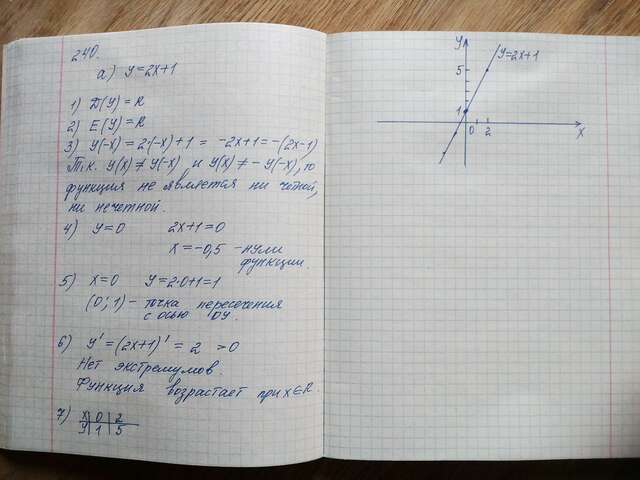 240.
а) y=2x+1
1) D(y)=R
2) E(y)=R
3) y(-x)=2·(-x)+1 = -2x+1=-(2x-1)
Т.к. y(x)≠y(-x) и y(x)≠-y(-x), то
функция не является ни четной,
ни нечетной.
4) y=0 2x+1=0
x=-0,5 -нули
функции.
5) x=0 y=2·0+1=1
(0;1)- точка пересечения
с осью OY.
6) y'=(2x+1)'=2 >0
Нет экстремумов.
Функция возрастает при x∈R.
7) x 0 2
y 1 5
y
y=2x+1
5
1
0 2
x